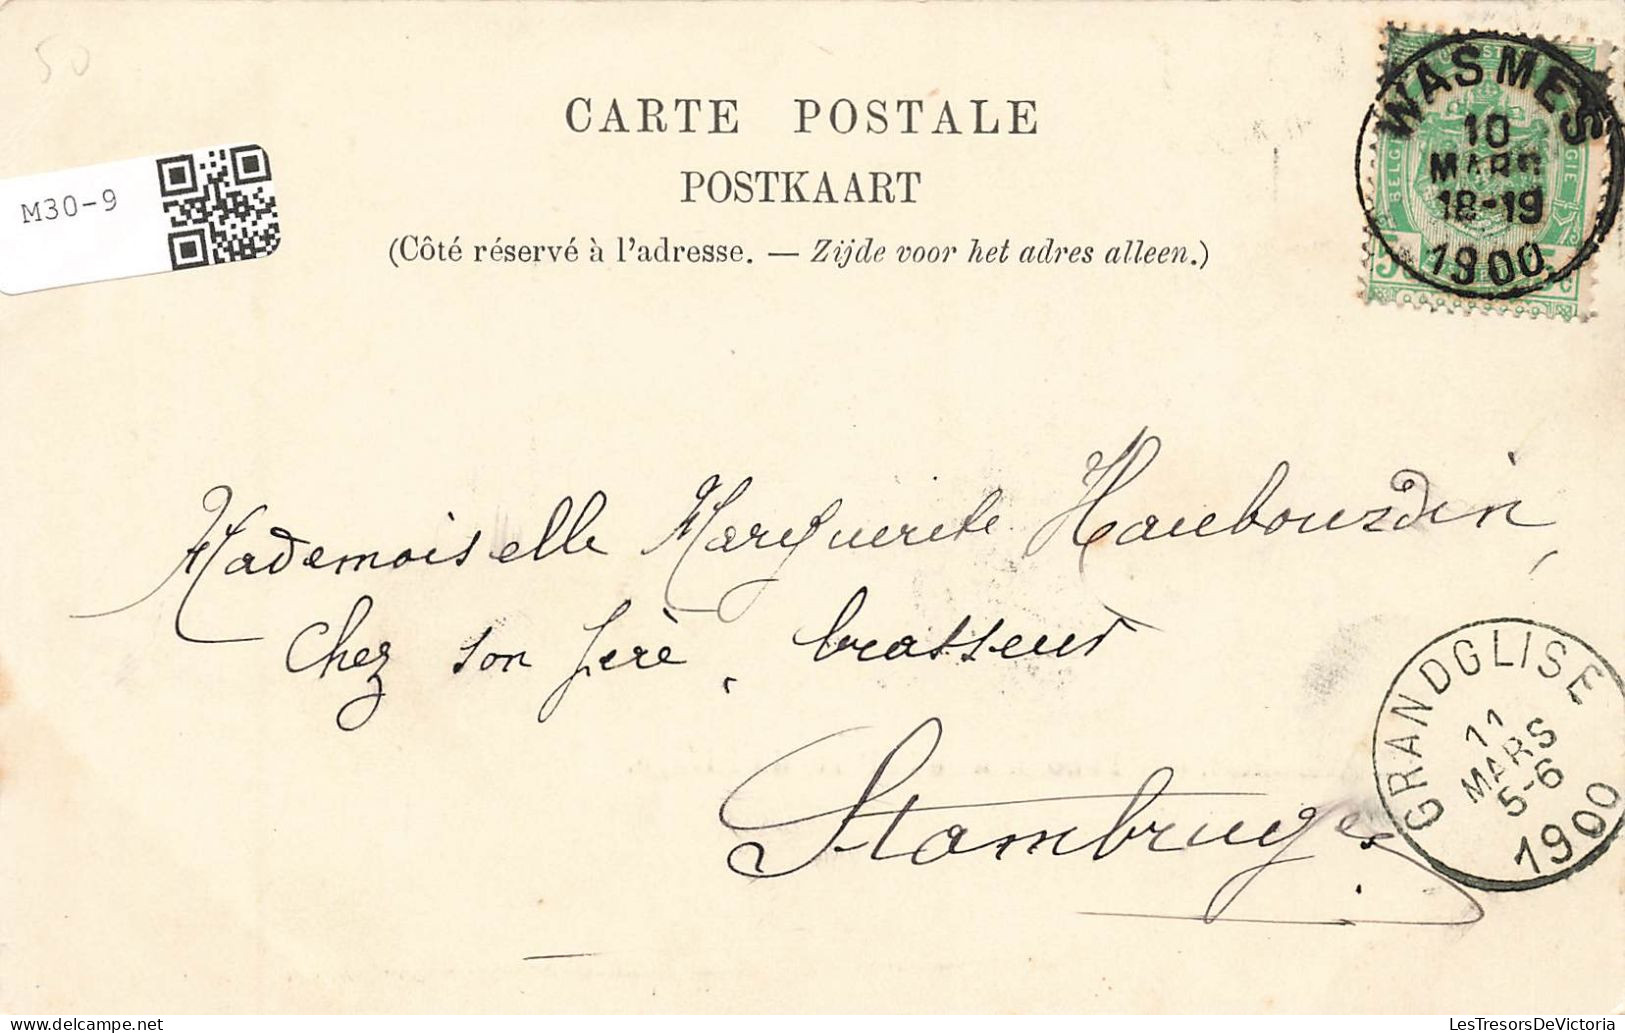 50
CARTE POSTALE
POSTKAART
(Côté réservé à l'adresse. — Zijde voor het adres alleen.)
M30-9
WASMES
10
MARS
18-19
1900
Mademoiselle Marguerite Haubourdin,
Chez son père, brasseur
Stambruges
GRANDGLISE
11
MARS
5-6
1900
LesTresorsDeVictoria